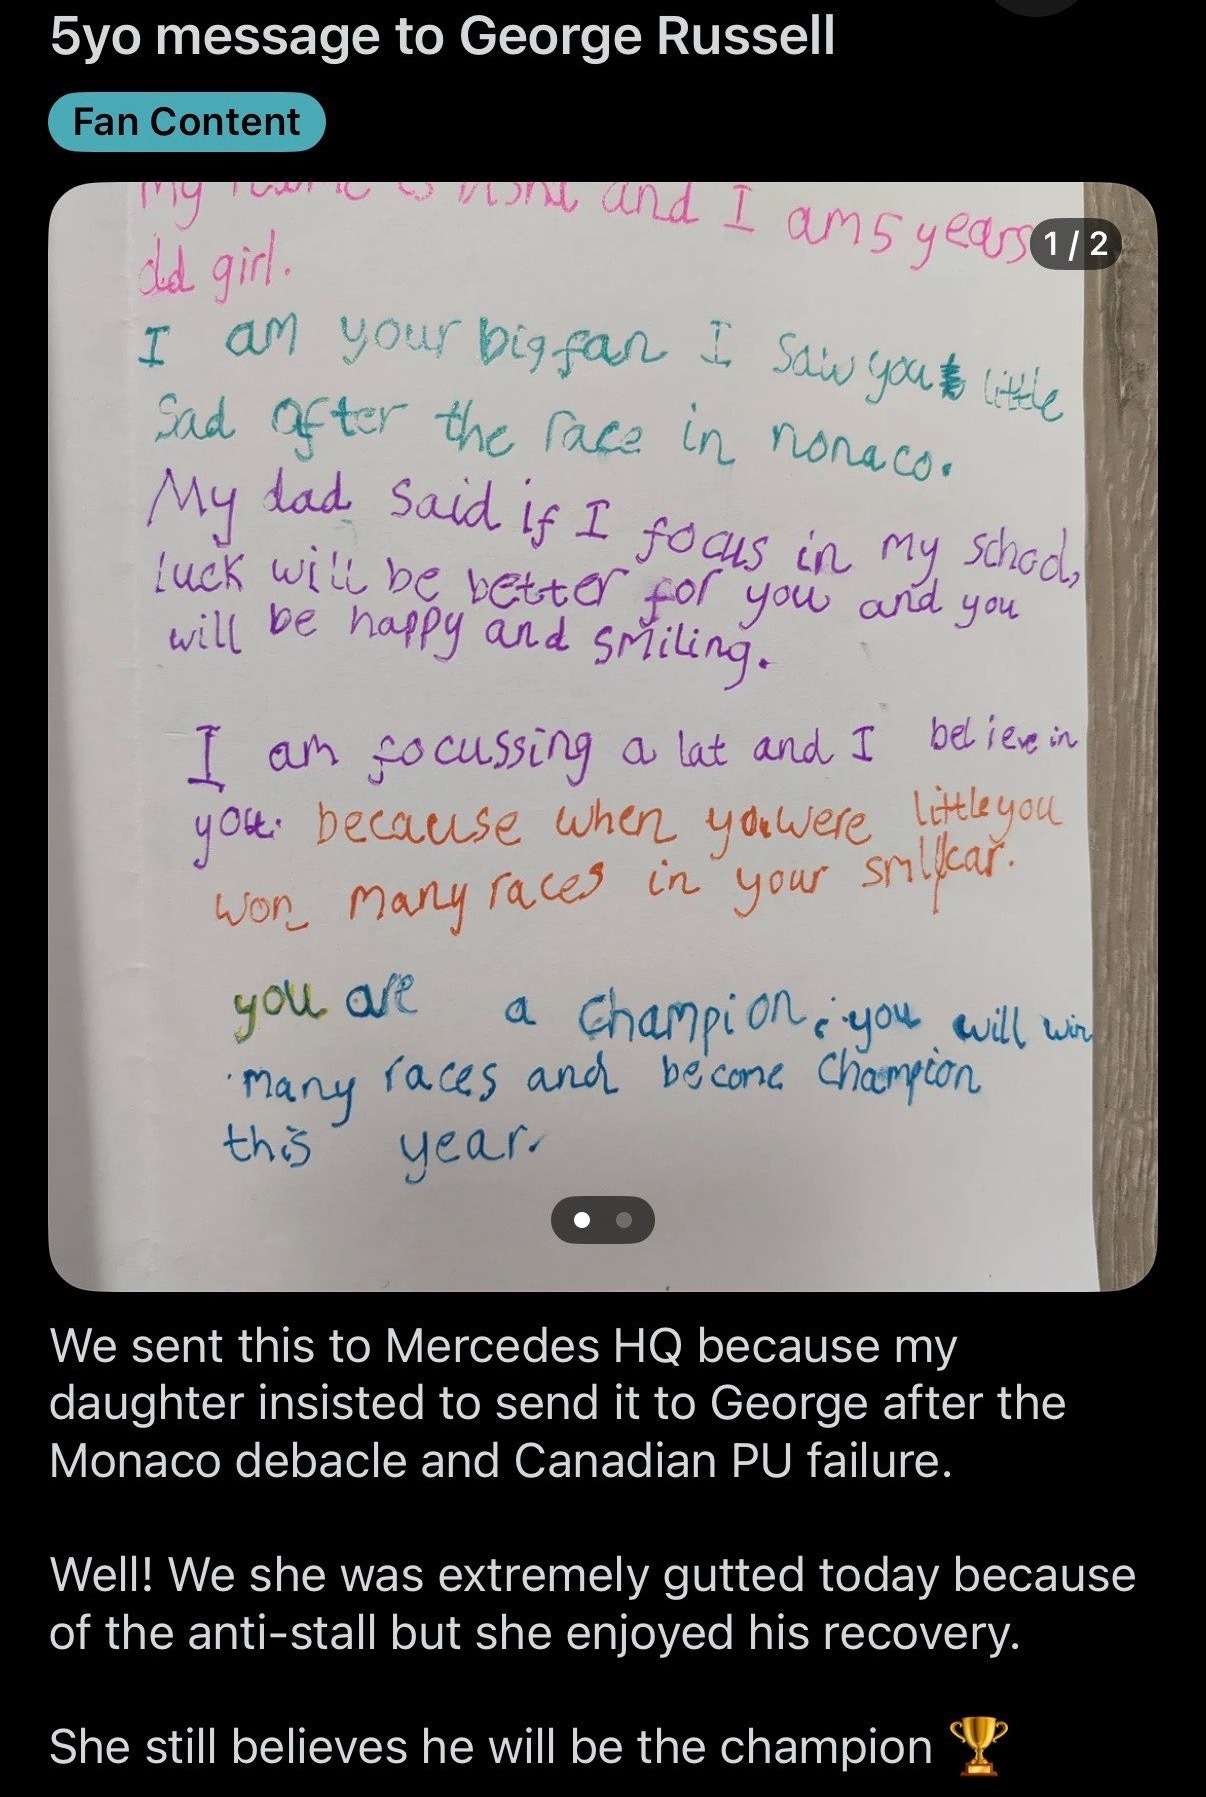 5yo message to George Russell
Fan Content
My name is and I am 5 years
old girl.
1/2
I am your big fan I saw you little
Sad after the race in nonaco.
My dad said if I focus in my school,
luck will be better for you and you
will be happy and smiling.
I am focussing a lat and I believe in
you. because when you were little you
won many races in your smll car.
you are a champion, you will win
many races and become champion
this year.
We sent this to Mercedes HQ because my
daughter insisted to send it to George after the
Monaco debacle and Canadian PU failure.
Well! We she was extremely gutted today because
of the anti-stall but she enjoyed his recovery.
She still believes he will be the champion 🏆